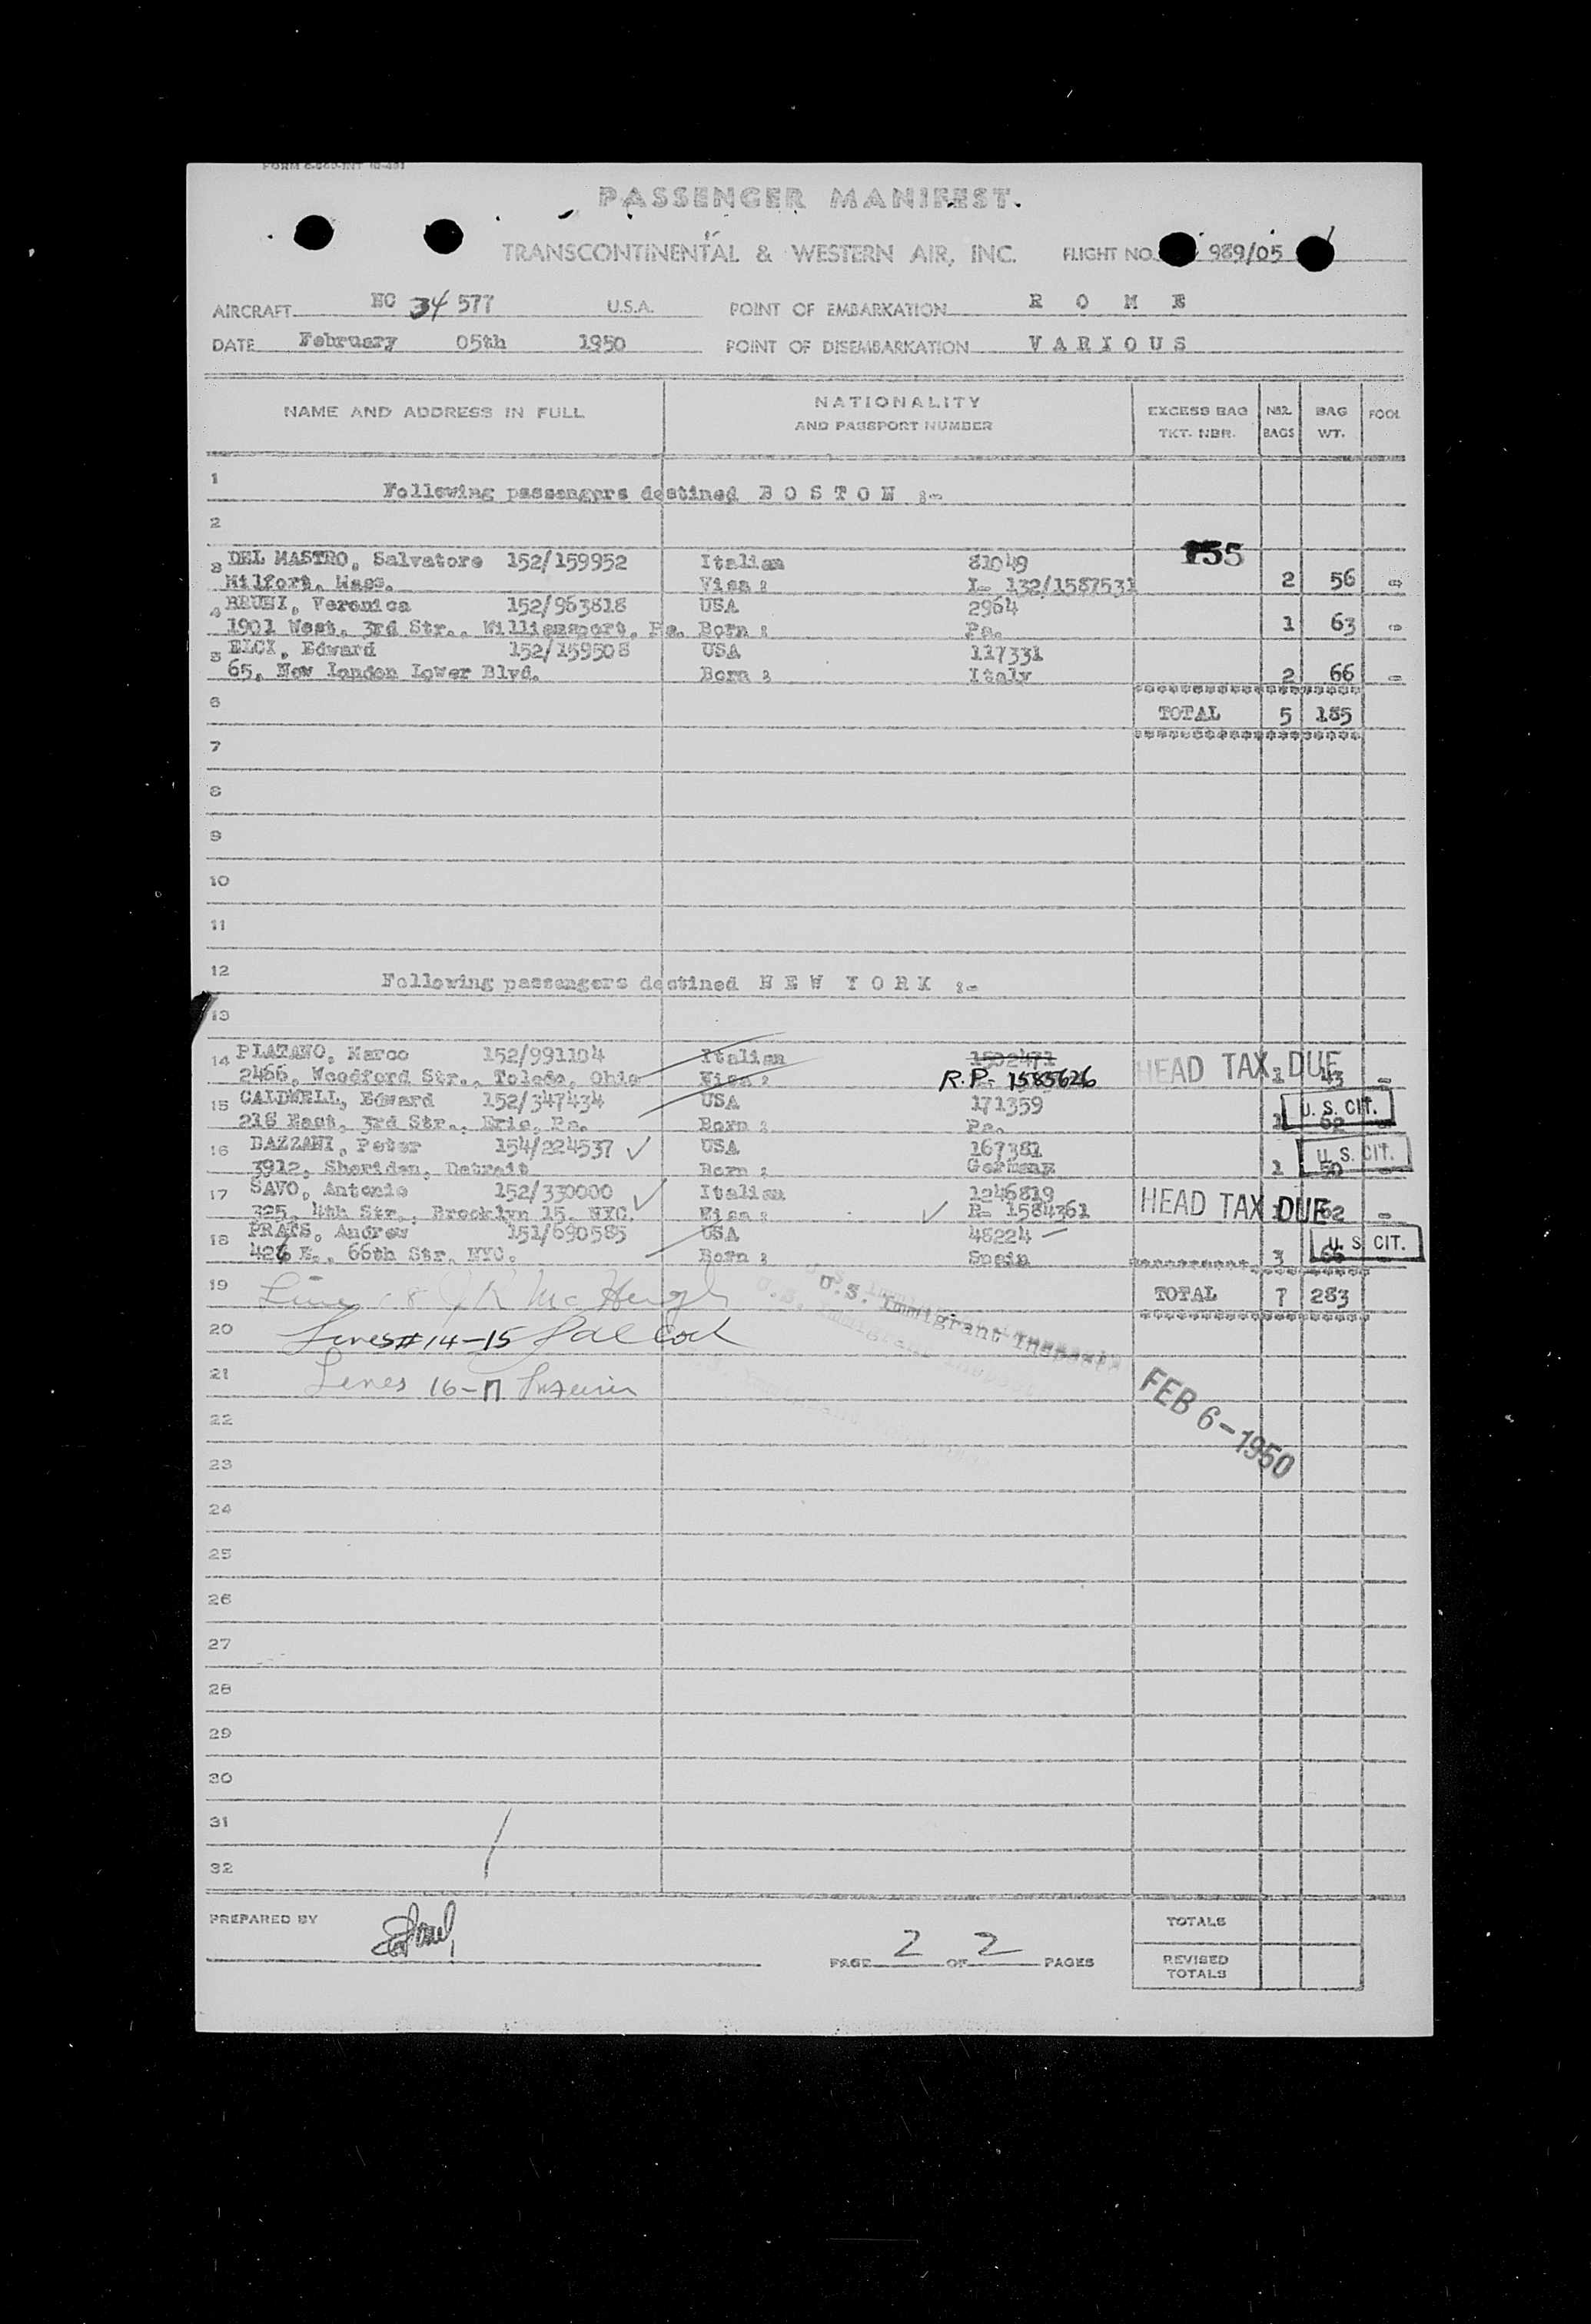 PASSENGER MANIFEST.
TRANSCONTINENTAL & WESTERN AIR, INC. FLIGHT NO. 989/05
AIRCRAFT NC 34 577 U.S.A. POINT OF EMBARKATION R O M E
DATE February 05th 1950 POINT OF DISEMBARKATION V A R I O U S
NAME AND ADDRESS IN FULL NATIONALITY AND PASSPORT NUMBER EXCESS BAG TKT. NBR. NBR. BAGS BAG WT.
1 Following passengers destined B O S T O N :-
2
3 DEL MASTRO, Salvatore 152/159952 Italian 81049 155
Milfort, Mass. Visa : I- 132/1587531 2 56 -
4 Veronica 152/963818 USA 2964
1901 West, 3rd Str., Williamsport, Pa. Born : Pa. 1 63 -
5 ELCI, Edward 152/159508 USA 117331
65, New London Lower Blvd. Born : Italy 2 66 -
6 TOTAL 5 185
7
8
9
10
11
12 Following passengers destined N E W Y O R K :-
13
14 PLATANO, Marco 152/991104 Italian 1502471 HEAD TAX DUE
2466, Woodford Str., Toledo, Ohio Visa : R.P. 1585626 1 43 -
15 CALDWELL, Edward 152/347434 USA 171359 U. S. CIT.
218 East, 3rd Str., Erie, Pa. Born : Pa. 1 62
16 BAZZANI, Peter 154/224537 ✓ USA 167381 U. S. CIT.
3912, Sheridan, Detroit Born : Germany 1 50
17 SAVO, Antonio 152/330000 ✓ Italian 1246819 HEAD TAX DUE
325, 4th Str., Brooklyn 15, NYC. Visa : ✓ R- 1584361 1 62 -
18 PRATS, Andrew 151/690585 USA 48224 U. S. CIT.
426 E., 66th Str. NYC. Born : Spain 3 66
19 Line 18 McHugh U.S. Immigrant Inspector TOTAL 7 283
20 Lines # 14-15
21 Lines 16-17
FEB 6-1950
22
23
24
25
26
27
28
29
30
31
32
PREPARED BY
PAGE 2 OF 2 PAGES
TOTALS
REVISED TOTALS